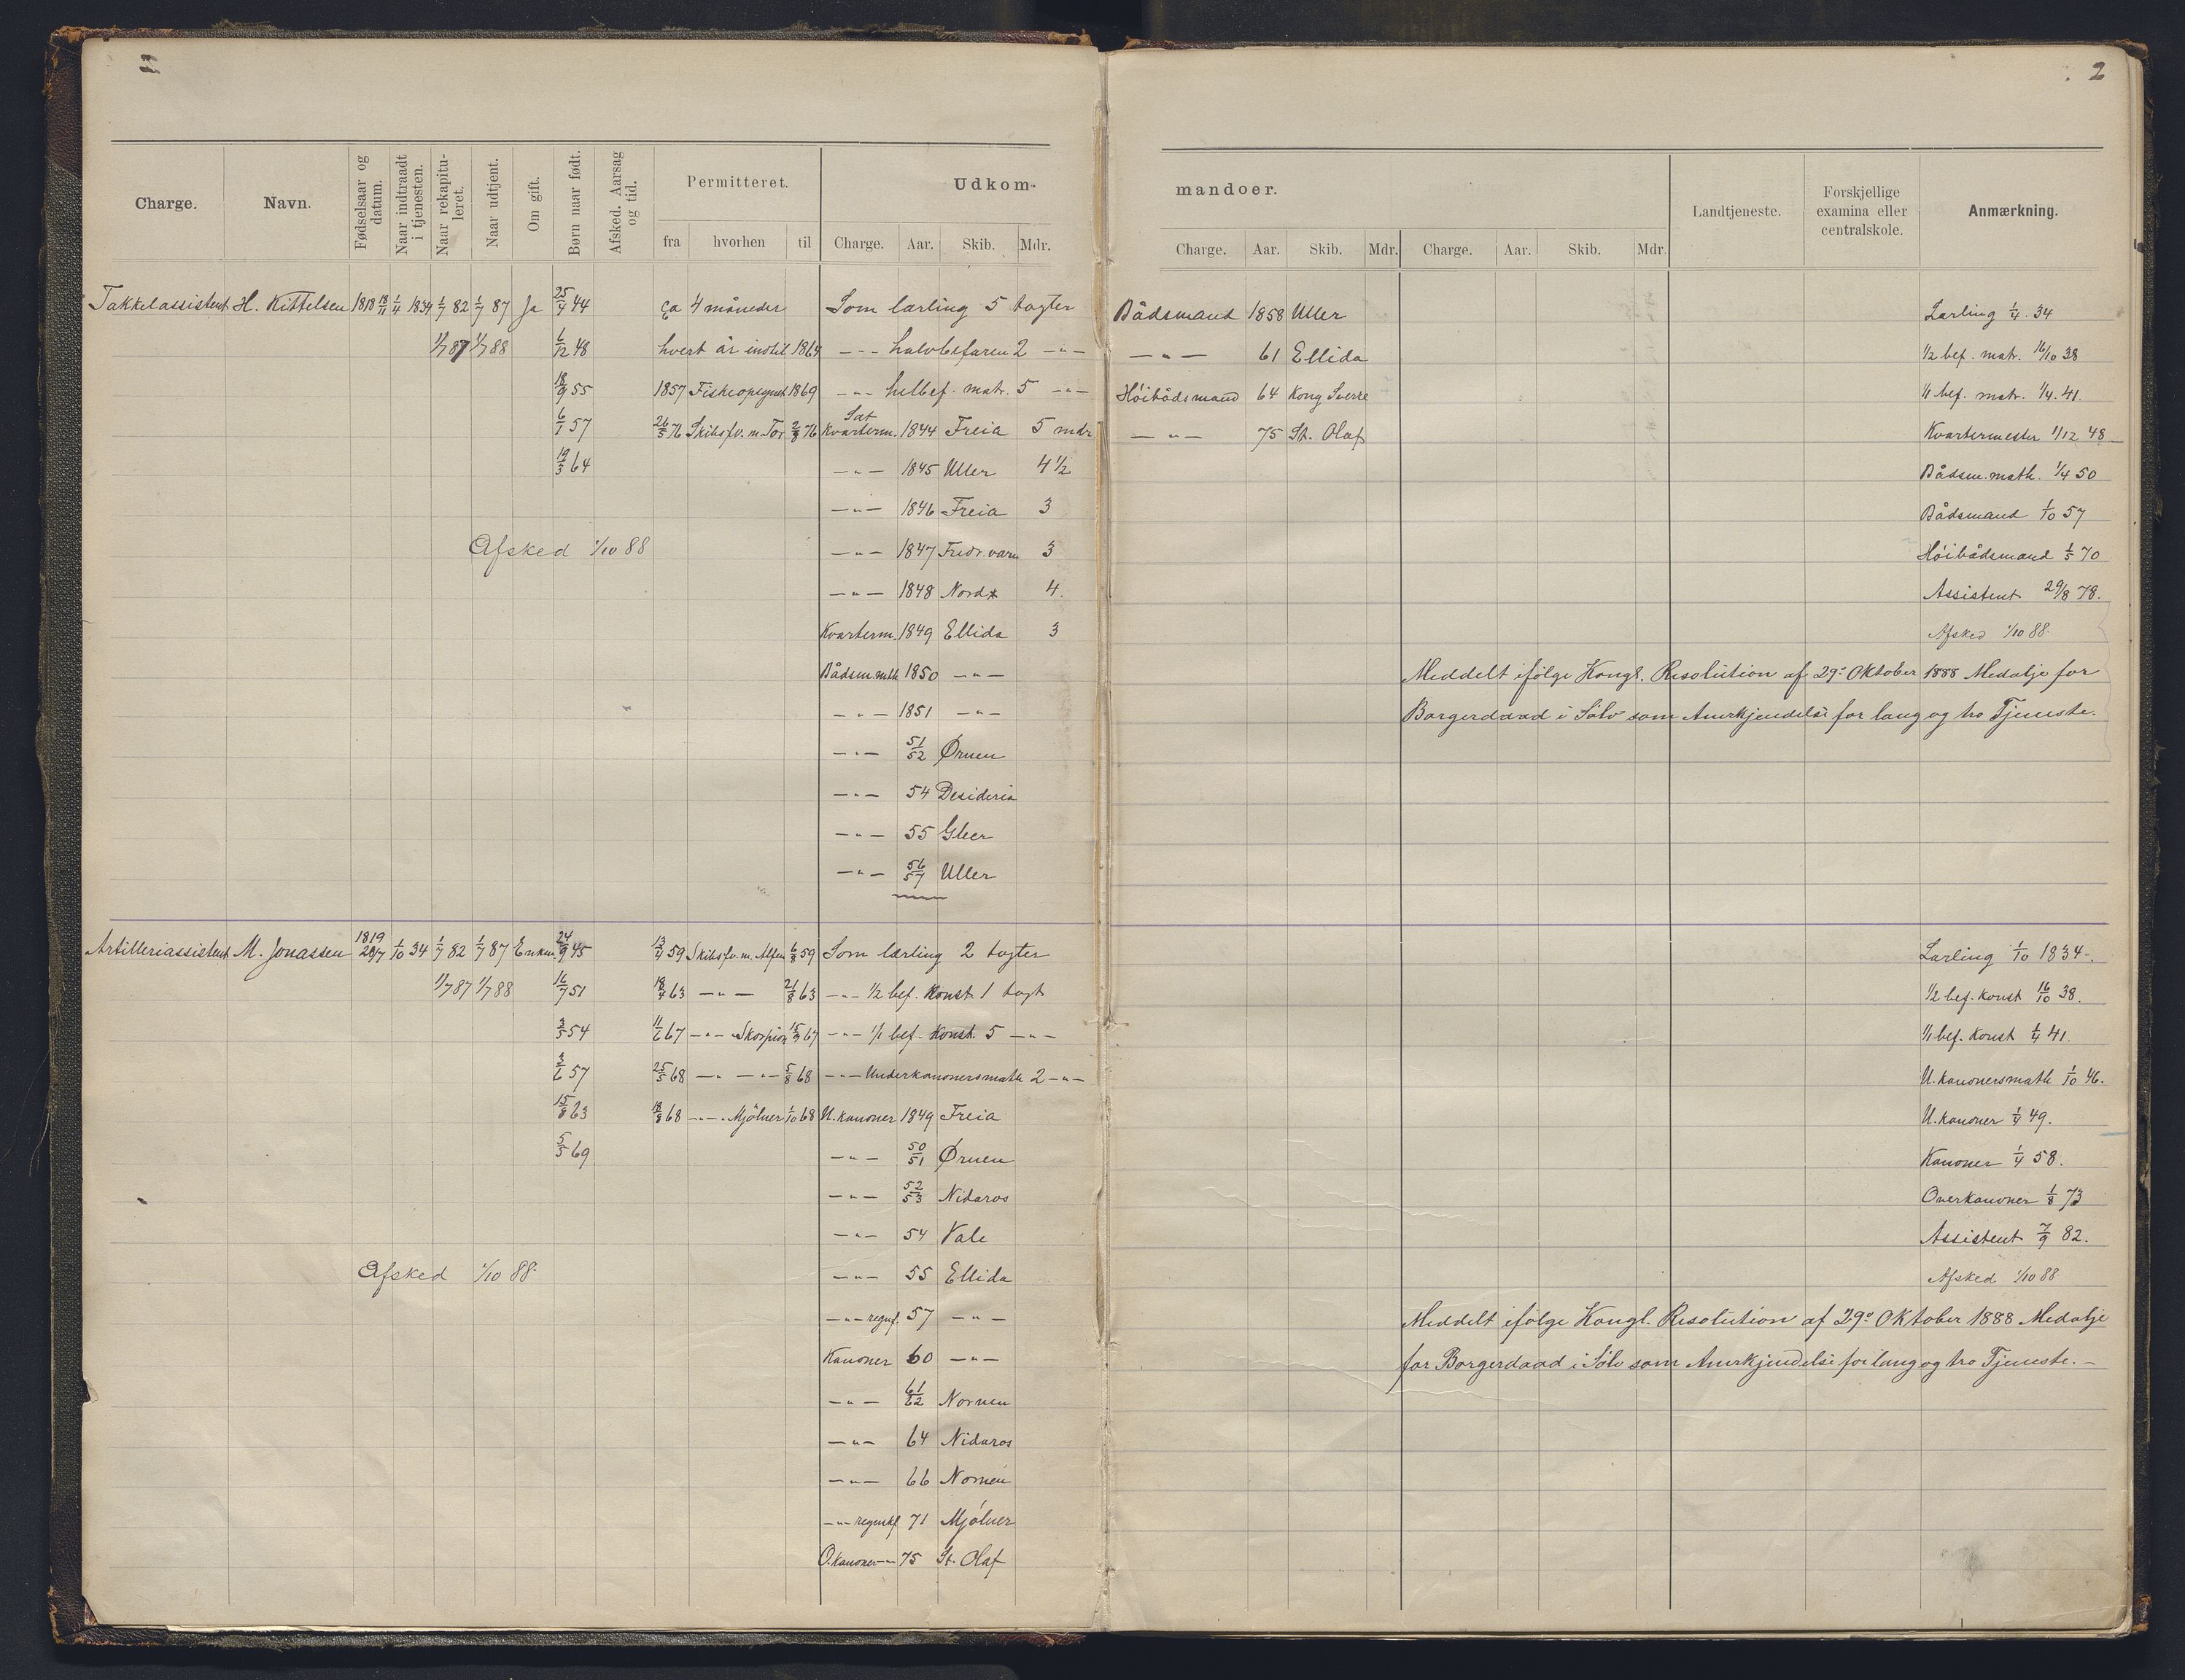 2
Charge. Navn. Fødselsaar og datum. Naar indtraadt i tjenesten. Naar rekapituleret. Naar udtjent. Om gift. Børn naar født. Afsked. Aarsag og tid. Permitteret. Udkommandoer. Landtjeneste. Forskjellige examina eller centralskole. Anmærkning.
fra hvorhen til Charge. Aar. Skib. Mdr. Charge. Aar. Skib. Mdr. Charge. Aar. Skib. Mdr.
Takkelassistent H. Kittelsen 1818 18/11 1/4 1834 1/7 82 1/7 87 Ja 25/4 44 ca 4 måneder Som lærling 5 togter Bådsmand 1858 Uller Lærling 1/4. 34
1/7 87 1/7 88 6/12 48 hvert år indtil 1864 -"- halvbefaren 2 -"- -"- 61 Ellida 1/2 bef. matr. 16/10 38
18/9 55 1857 Fiskeopsynet 1869 -"- helbef. matr. 5 -"- Høibådsmand 64 Kong Sverre 1/1 bef. matr. 1/4. 41.
6/1 57 26/5 76 Skibsfv. m. Tor 2/8 76 Sat Kvarterm. 1844 Freia 5 mdr -"- 75 St. Olaf Kvartermester 1/12 48
19/3 64 -"- 1845 Uller 4 1/2 Bådsm.math. 1/4 50
-"- 1846 Freia 3 Bådsmand 1/10 57
Afsked 1/10 88 -"- 1847 Fredr.værn 3 Høibådsmand 1/5 70
-"- 1848 Nord* 4. Assistent 29/8 78.
Kvarterm. 1849 Ellida 3 Afsked 1/10 88.
Bådsm.mth 1850 -"- Meddelt ifølge Kongl. Resolution af 29de Oktober 1888 Medalje for
-"- 1851 -"- Borgerdaad i Sølv som Anerkjendelse for lang og tro Tjeneste.
-"- 51/52 Ørnen
-"- 54 Desideria
-"- 55 Gleer
-"- 56/57 Uller
Artilleriassistent M. Jonassen 1819 28/7 1/10 34 1/7 82 1/7 87 Enkem. 24/9 45 13/4 59 Skibsfv. m. Alfen 6/8 59 Som lærling 2 togter Lærling 1/10 1834.
1/7 87 1/7 88 16/7 51 18/4 63 -"- 21/8 63 -"- 1/2 bef. Konst. 1 togt 1/2 bef. konst 16/10 38.
3/5 54 11/6 67 -"- Skorpion 15/3 67 -"- 1/1 bef. Konst. 5 -"- 1/1 bef. Konst 1/4 41.
3/6 57 25/5 68 -"- -"- 5/8 68 -"- Underkanonersmath 2 -"- U.kanonersmath 1/10 46.
15/8 63 18/8 68 -"- Mjölner 1/10 68 U.kanoner 1849 Freia U.kanoner 1/4 49.
5/5 69 -"- 50/51 Ørnen Kanoner 1/4 58.
-"- 52/53 Nidaros Overkanoner 1/8 73
-"- 54 Vale Assistent 7/9 82.
Afsked 1/10 88. -"- 55 Ellida Afsked 1/10 88.
-"- regnsf. 57 -"- Meddelt ifølge Kongl. Resolution af 29de Oktober 1888 Medalje
Kanoner 60 -"- for Borgerdaad i Sølv som Anerkjendelse for lang og tro Tjeneste.-
-"- 61/62 Nornen
-"- 64 Nidaros
-"- 66 Nornen
-"- regnskf. 71 Mjölner
O.kanoner -"- 75 St. Olaf